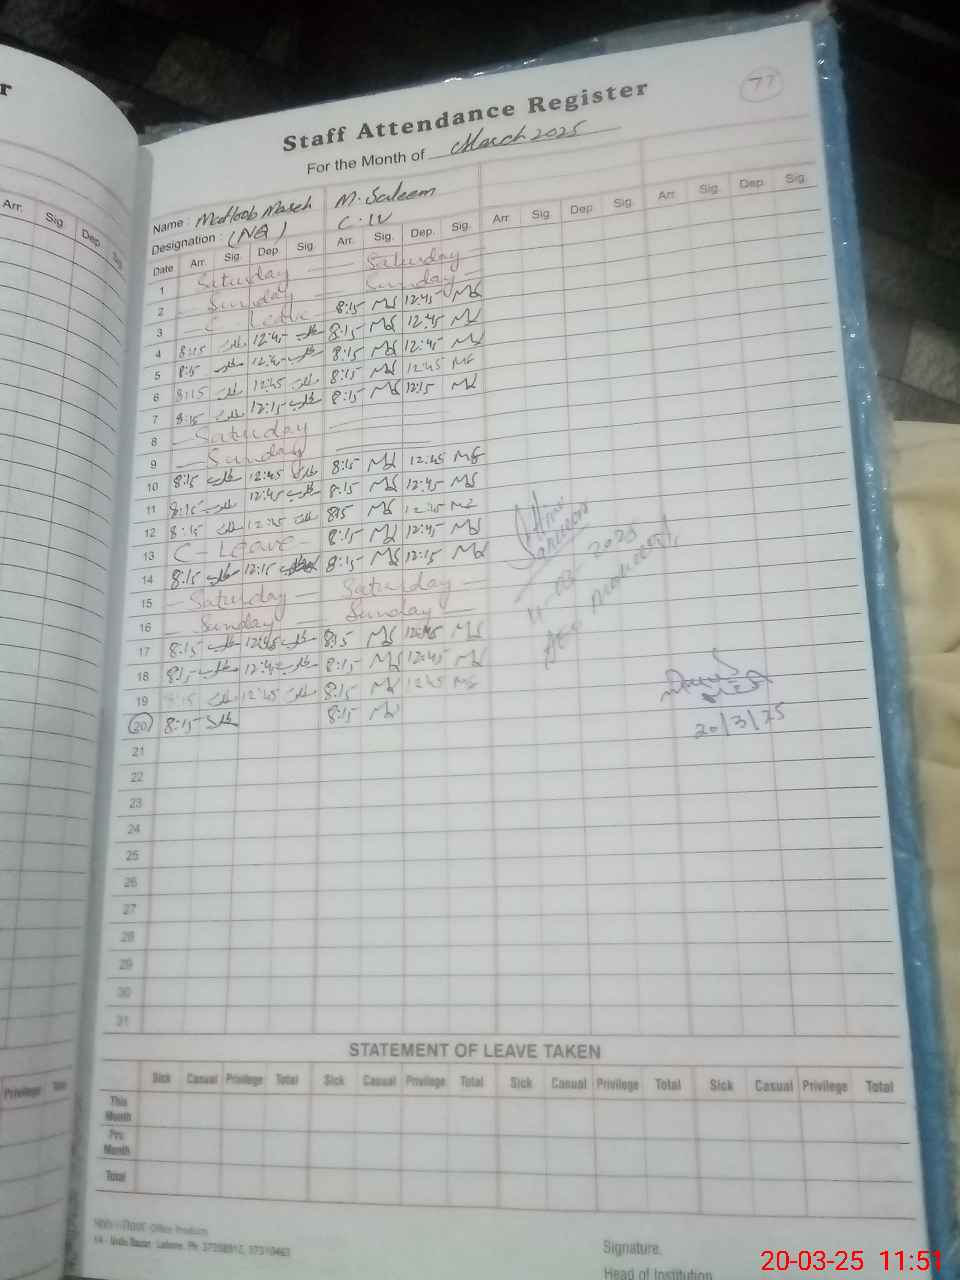 r
77
Staff Attendance Register
For the Month of March 2025
Name : Matloob Maseh M. Saleem
Designation : (NQ) C.IV
Arr. Sig. Dep. Sig.
Date Arr. Sig. Dep. Sig. Arr. Sig. Dep. Sig. Arr. Sig. Dep. Sig. Arr. Sig. Dep. Sig.
1 Saturday Saturday
2 Sunday Sunday
3 C - Leave 8:15 MS 12:45 MS
4 8:15 طالب 12:45 طالب 8:15 MS 12:45 MS
5 8:15 طالب 12:45 طالب 8:15 MS 12:45 MS
6 8:15 طالب 12:45 طالب 8:15 MS 12:45 MS
7 8:15 طالب 12:15 طالب 8:15 MS 12:15 MS
8 Saturday
9 Sunday
10 8:15 طالب 12:45 طالب 8:15 MS 12:45 MS
11 8:15 طالب 12:45 طالب 8:15 MS 12:45 MS
12 8:15 طالب 12:45 طالب 8:15 MS 12:45 MS
13 C - Leave 8:15 MS 12:45 MS
14 8:15 طالب 12:15 طالب 8:15 MS 12:15 MS
15 Saturday Saturday
16 Sunday Sunday
17 8:15 طالب 12:45 طالب 8:15 MS 12:45 MS
18 8:15 طالب 12:45 طالب 8:15 MS 12:45 MS
19 8:15 طالب 12:45 طالب 8:15 MS 12:45 MS
20 8:15 طالب 8:15 MS
2025
20/3/25
21
22
23
24
25
26
27
28
29
30
31
STATEMENT OF LEAVE TAKEN
Sick Casual Privilege Total Sick Casual Privilege Total Sick Casual Privilege Total Sick Casual Privilege Total
This Month
Pre Month
Total
Privilege
Office Products
14 - Urdu Bazar, Lahore. Ph:
Signature.
Head of Institution
20-03-25 11:51